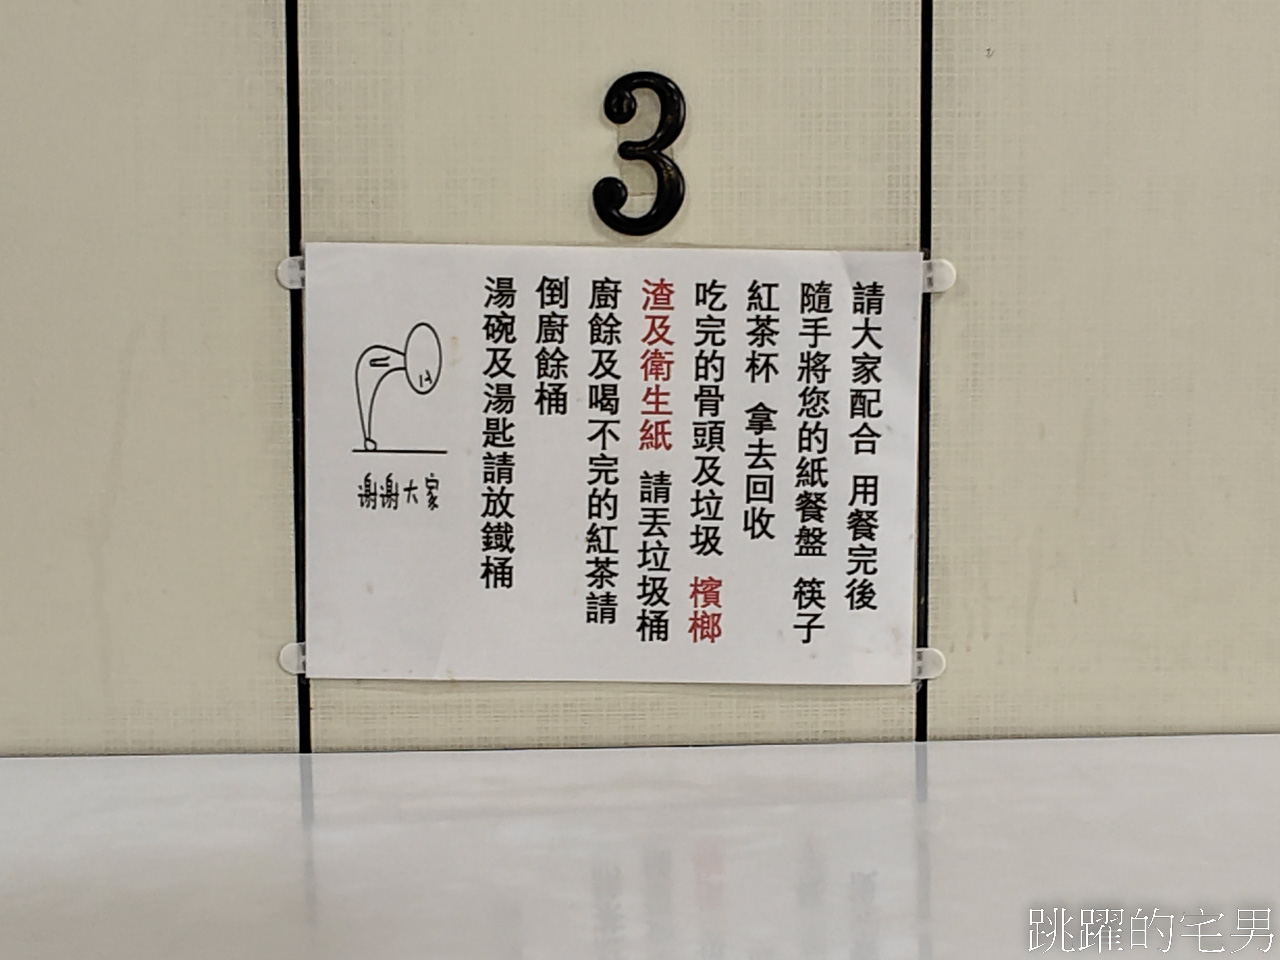 3
請大家配合 用餐完後
隨手將您的紙餐盤 筷子
紅茶杯 拿去回收
吃完的骨頭及垃圾 檳榔
渣及衛生紙 請丟垃圾桶
廚餘及喝不完的紅茶請
倒廚餘桶
湯碗及湯匙請放鐵桶
谢谢大家
跳躍的宅男